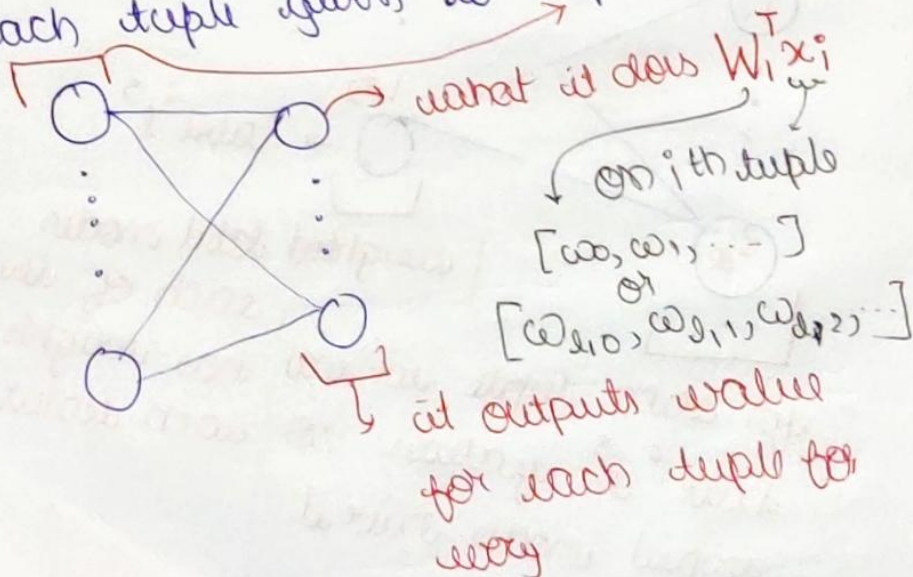 each tuple
what it does W₁ᵀxᵢ
on ith tuple
[ω₀, ω₁, ...]
or
[ω_{l,0}, ω_{l,1}, ω_{l,2}, ...]
it outputs value
for each tuple for
every